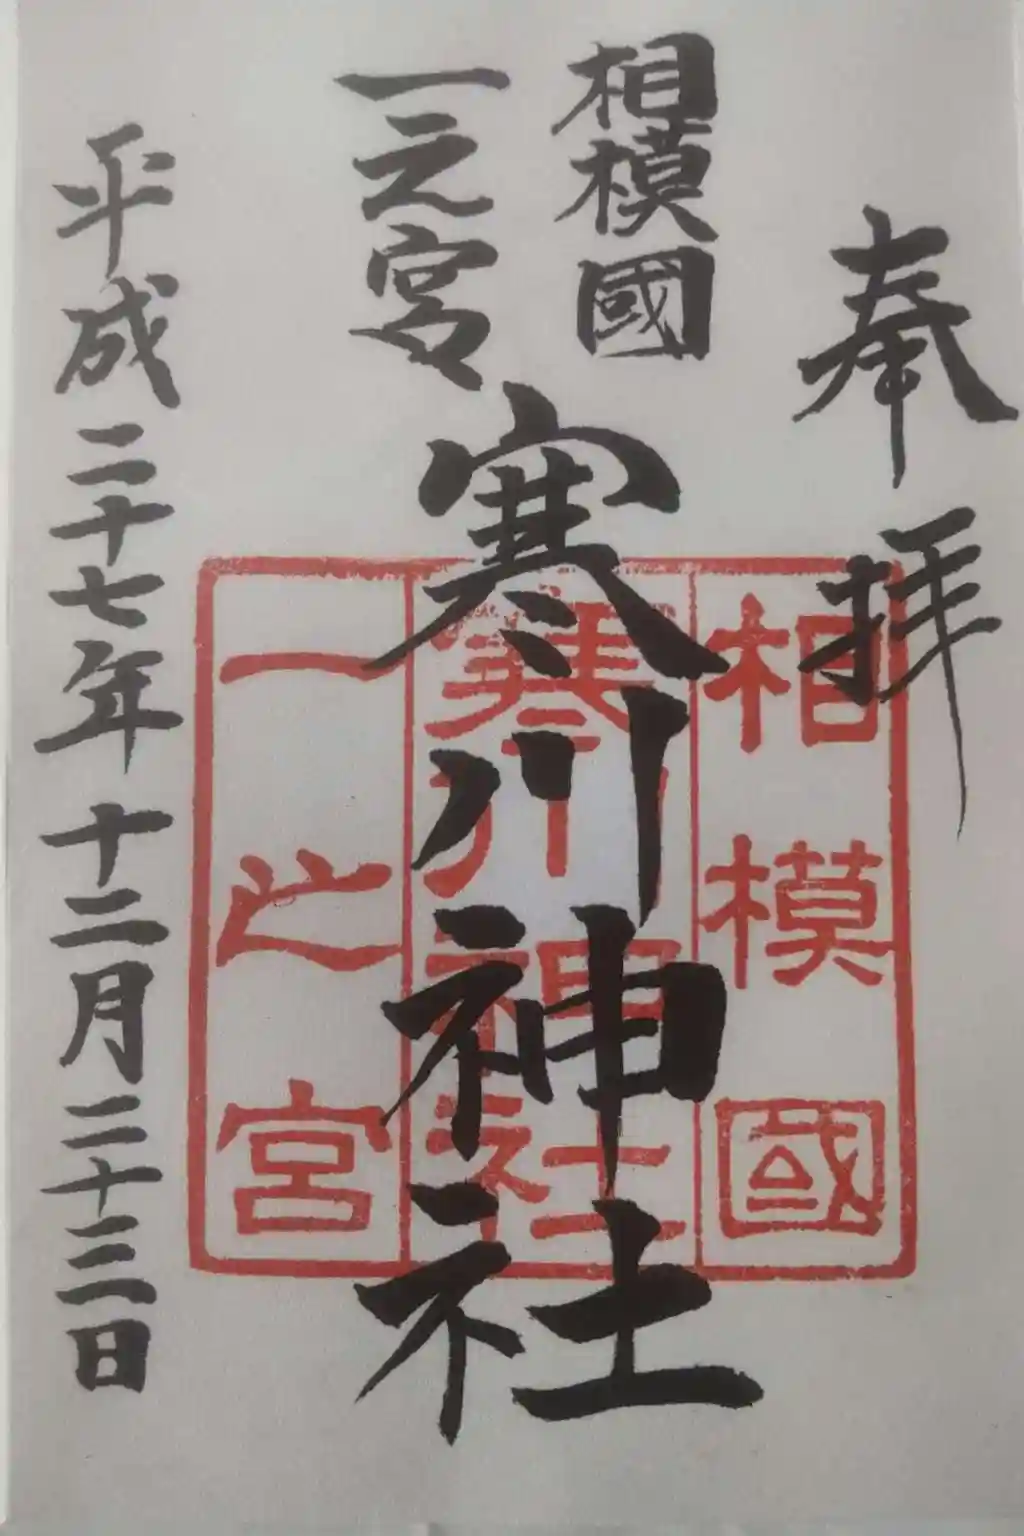 奉拝
相模國
一之宮
寒川神社
平成二十七年十二月二十三日
相模國
寒川神社
一之宮